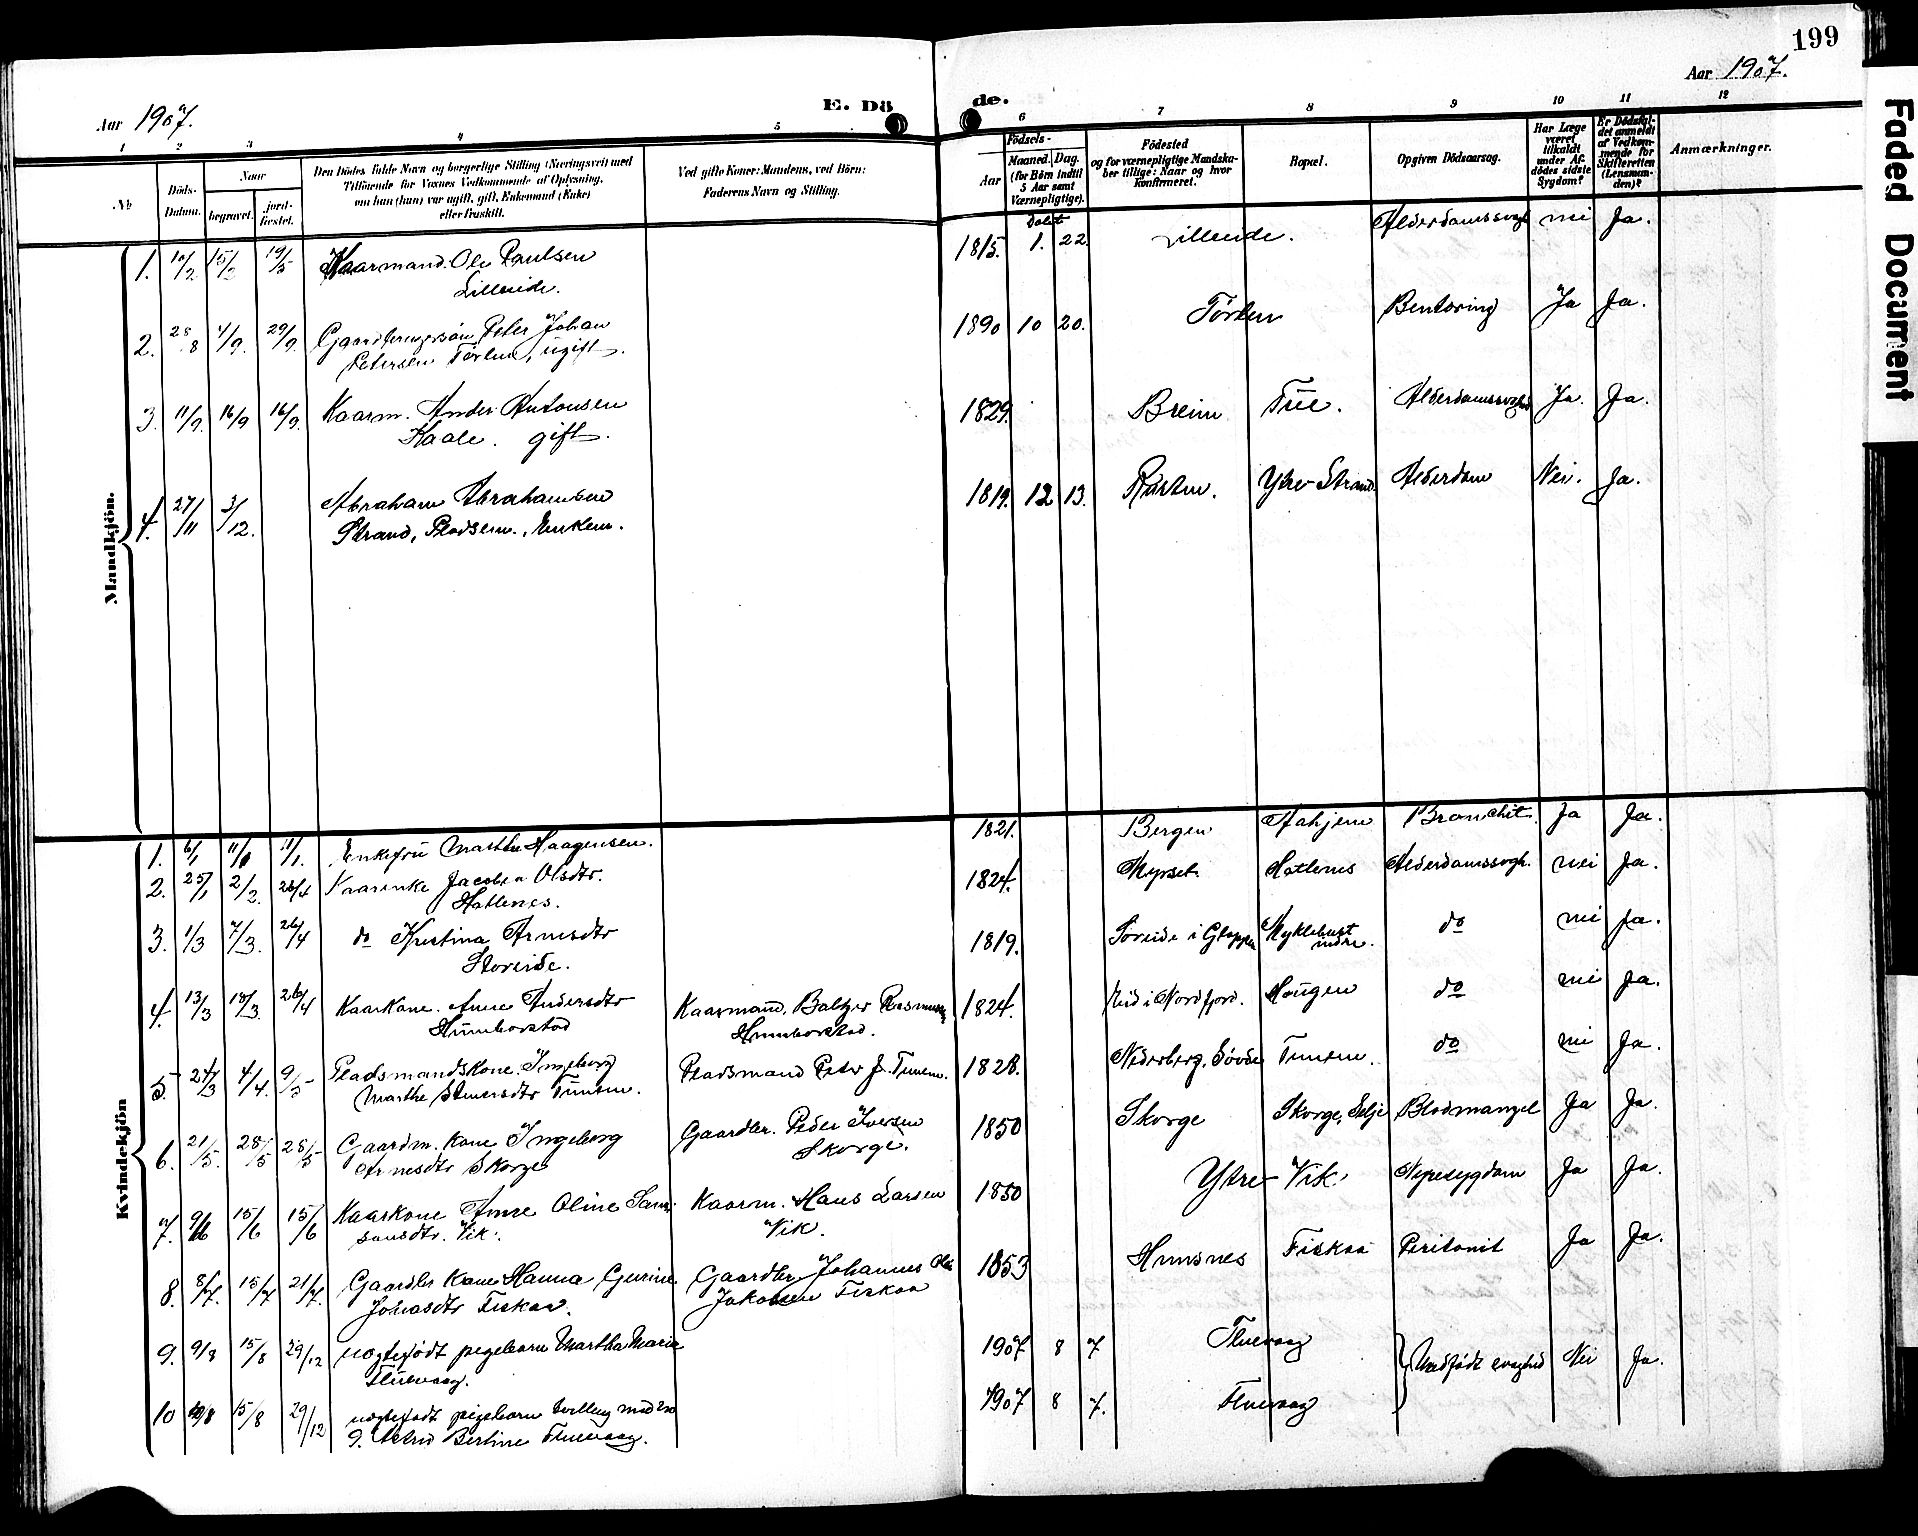 199
Aar 1907.
E. Dö
de.
Aar 1907.
1 2 3 4 5 6 7 8 9 10 11 12
No
Döds-Datum.
Naar
begravet.
jord-fæstet.
Den Dödes fulde Navn og borgerlige Stilling (Næringsvei) med
Tilföiende for Voxnes Vedkommende af Oplysning,
om han (hun) var ugift, gift, Enkemand (Enke)
eller fraskilt.
Ved gifte Koner: Mandens, ved Börn:
Faderens Navn og Stilling.
Födsels-
Aar
Maaned. Dag.
(for Börn indtil
5 Aar samt
Værnepligtige).
Födested
og for værnepligtige Mandska-
ber tillige: Naar og hvor
konfirmeret.
Bopæl.
Opgiven Dödsaarsag.
Har Læge
været
tilkaldt
under Af-
dödes sidste
Sygdom?
Er Dödsfal-
det anmeldt
af Vedkom-
mende for
Skifteretten
(Lensman-
den)?
Anmærkninger.
Mandkjön.
1. 10/2 15/2 19/5 Kaarmand Ole Paulsen
Lilleeide.
1815. Döbt 1. 22. Lilleeide. Alderdomssvagh nei Ja.
2. 28/8 4/9. 29/9. Gaardbrugersön Peter Johan
Petersen Törlen, ugift.
1890 10 20. Törlen Bentæring Ja Ja.
3. 11/9. 16/9 16/9. Kaarm. Anders Antonsen
Kaale. gift.
1829. Breim Tue. Alderdomssvaghed Ja. Ja.
4. 27/11 3/12. Abraham Abrahamsen
Strand, Pladsem., Enkem.
1819. 12 13. Rusten. Ytre Strand. Alderdom Nei. Ja.
Kvindekjön
1. 6/1 11/1 11/1. Enkefru Marthe Haagensen.
1821. Bergen Aahjem Bronchit. Ja Ja.
2. 25/1 2/2. 26/4 Kaarenke Jacobea Olsdtr.
Hatlenes.
1824. Myrset Hatlenes Alderdomssvagh. nei Ja.
3. 1/3 7/3. 26/4 do Kristina Arnesdtr
Storeide.
1819. Soreide i Gloppen Myklebust
indre. do nei Ja.
4. 13/3 18/3. 26/4 Kaarkone. Anne Andersdtr
Humborstad
Kaarmand, Baltzer Rasmussen
Humborstad.
1824. Eid i Nordfjord. Haugen do nei Ja.
5. 24/3 4/4. 9/5 Pladsmandskone. Ingeborg
Marthe Elmersdtr Tunem.
Pladsmand Peter J. Tunem.
1828. Nederberg, Søvde Tunem. do nei Ja.
6. 21/5. 28/5 28/5 Gaardm. kone Ingeborg
Arnesdtr Skorge
Gaardbr. Peder Iversen
Skorge.
1850 Skorge Skorge, Selje Blodmangel Ja Ja.
7. 9/6 15/6 15/6 Kaarkone Anne Oline Sam-
sonsdtr. Vik.
Kaarm. Hans Larsen
Vik.
1850 Ytre Vik. Nyresygdom Ja Ja.
8. 8/7. 15/7 21/7. Gaardbr kone Hanna Gurine
Johnsdtr Fiskaa.
Gaardbr Johannes Ole
Jakobsen Fiskaa
1853 Hunsnes Fiskaa Peritonit Ja Ja.
9. 9/8 15/8 29/12 uægtefödt pigebarn Martha Marie
Thuevaag.
1907 8 7 Thuevaag Medfödt svaghed Nei Ja.
10 10/8 15/8 29/12 uægtefödt pigebarn tvilling med no
9. Astrid Bertine Thuevaag.
1907 8 7. Thuevaag
Faded Document